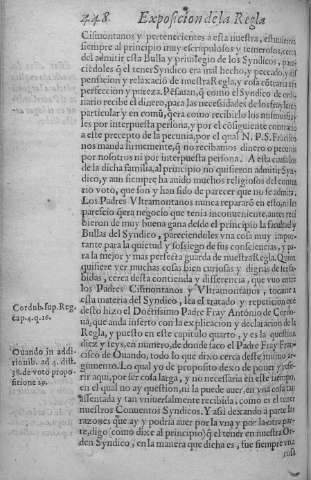 448. Exposicion de la Regla
Cismontanos y pertenecientes a esta nuestra, estuuieron
siempre al principio muy escrupulosos y temerosos, cerca
del admitir esta Bulla y priuilegio de los Syndicos, pare-
ciẽdoles q̃ el tener Syndico era mal hecho, y pecado, y dis
pensacion y relaxaciõ de nuestra Regla, y cosa cõtraria a su
perfeccion y pureza. Pẽsauan, q̃ como el Syndico de ordi-
nario recibe el dinero, para las necesidades de los frayles en
particular y en comũ, q̃ era como recibirlo los mismos fray
les por interpuesta persona, y por el cõsiguiente contrario
a este precepto de la pecunia, por el qual N. P. S. Francisco
nos manda firmemente, q̃ no recibamos dinero o pecunia
por nosotros ni por interpuesta persona. A esta causa los
de la dicha familia, al principio no quisieron admitir Syn-
dico, y aun siempre ha auido muchos religiosos del contra
rio voto, que son y han sido de parecer que no se admita.
Los Padres Vltramontanos nunca repararõ en esto, ni les
parescio q̃ era negocio que tenia inconueniente, antes reci
bieron de muy buena gana desde el principio la facultad y
Bullas del Syndico, pareciendoles vna cosa muy impor-
tante para la quietud y sossiego de sus consciencias, y pa-
ra la mejor y mas perfecta guarda de nuestra Regla. Quien
quisiere ver muchas cosas bien curiosas y dignas de ser sa-
bidas, cerca desta contienda y differencia, que vuo entre
los Padres Cismontanos y Vltramontanos, tocante a
esta materia del Syndico, lea el tratado y repeticion que
desto hizo el Doctissimo Padre Fray Antonio de Cordo-
ua, que anda inserto con la explicacion y declaracion de la
Regla, y puesto en este capitulo quarto, y es la question
diez y seys, en numero, de donde saco el Padre Fray Fran
cisco de Ouando, todo lo que dixo cerca deste mismo ar-
gumento. Lo qual yo de proposito dexo de poner y inse-
rir aqui, por ser cosa larga, y no necessaria en este tiempo,
en el qual no ay question, ni la puede auer, en vna cosa tan
assentada y tan vniuersalmente recibida, como es el tener
nuestros Conuentos Syndicos. Y assi dexando a parte las
razones que ay y podria auer por la vna y por la otra par
te, digo (como dixe al principio) q̃ el tener en nuestra Or-
den Syndico, en la manera que dicha es, fue siempre vna
cosa
Cordub. sup. Reg.
cap. 4. q. 16.
Ouando in addi-
tionib. ad 4. dist.
38. de voto propo-
sitione 29.